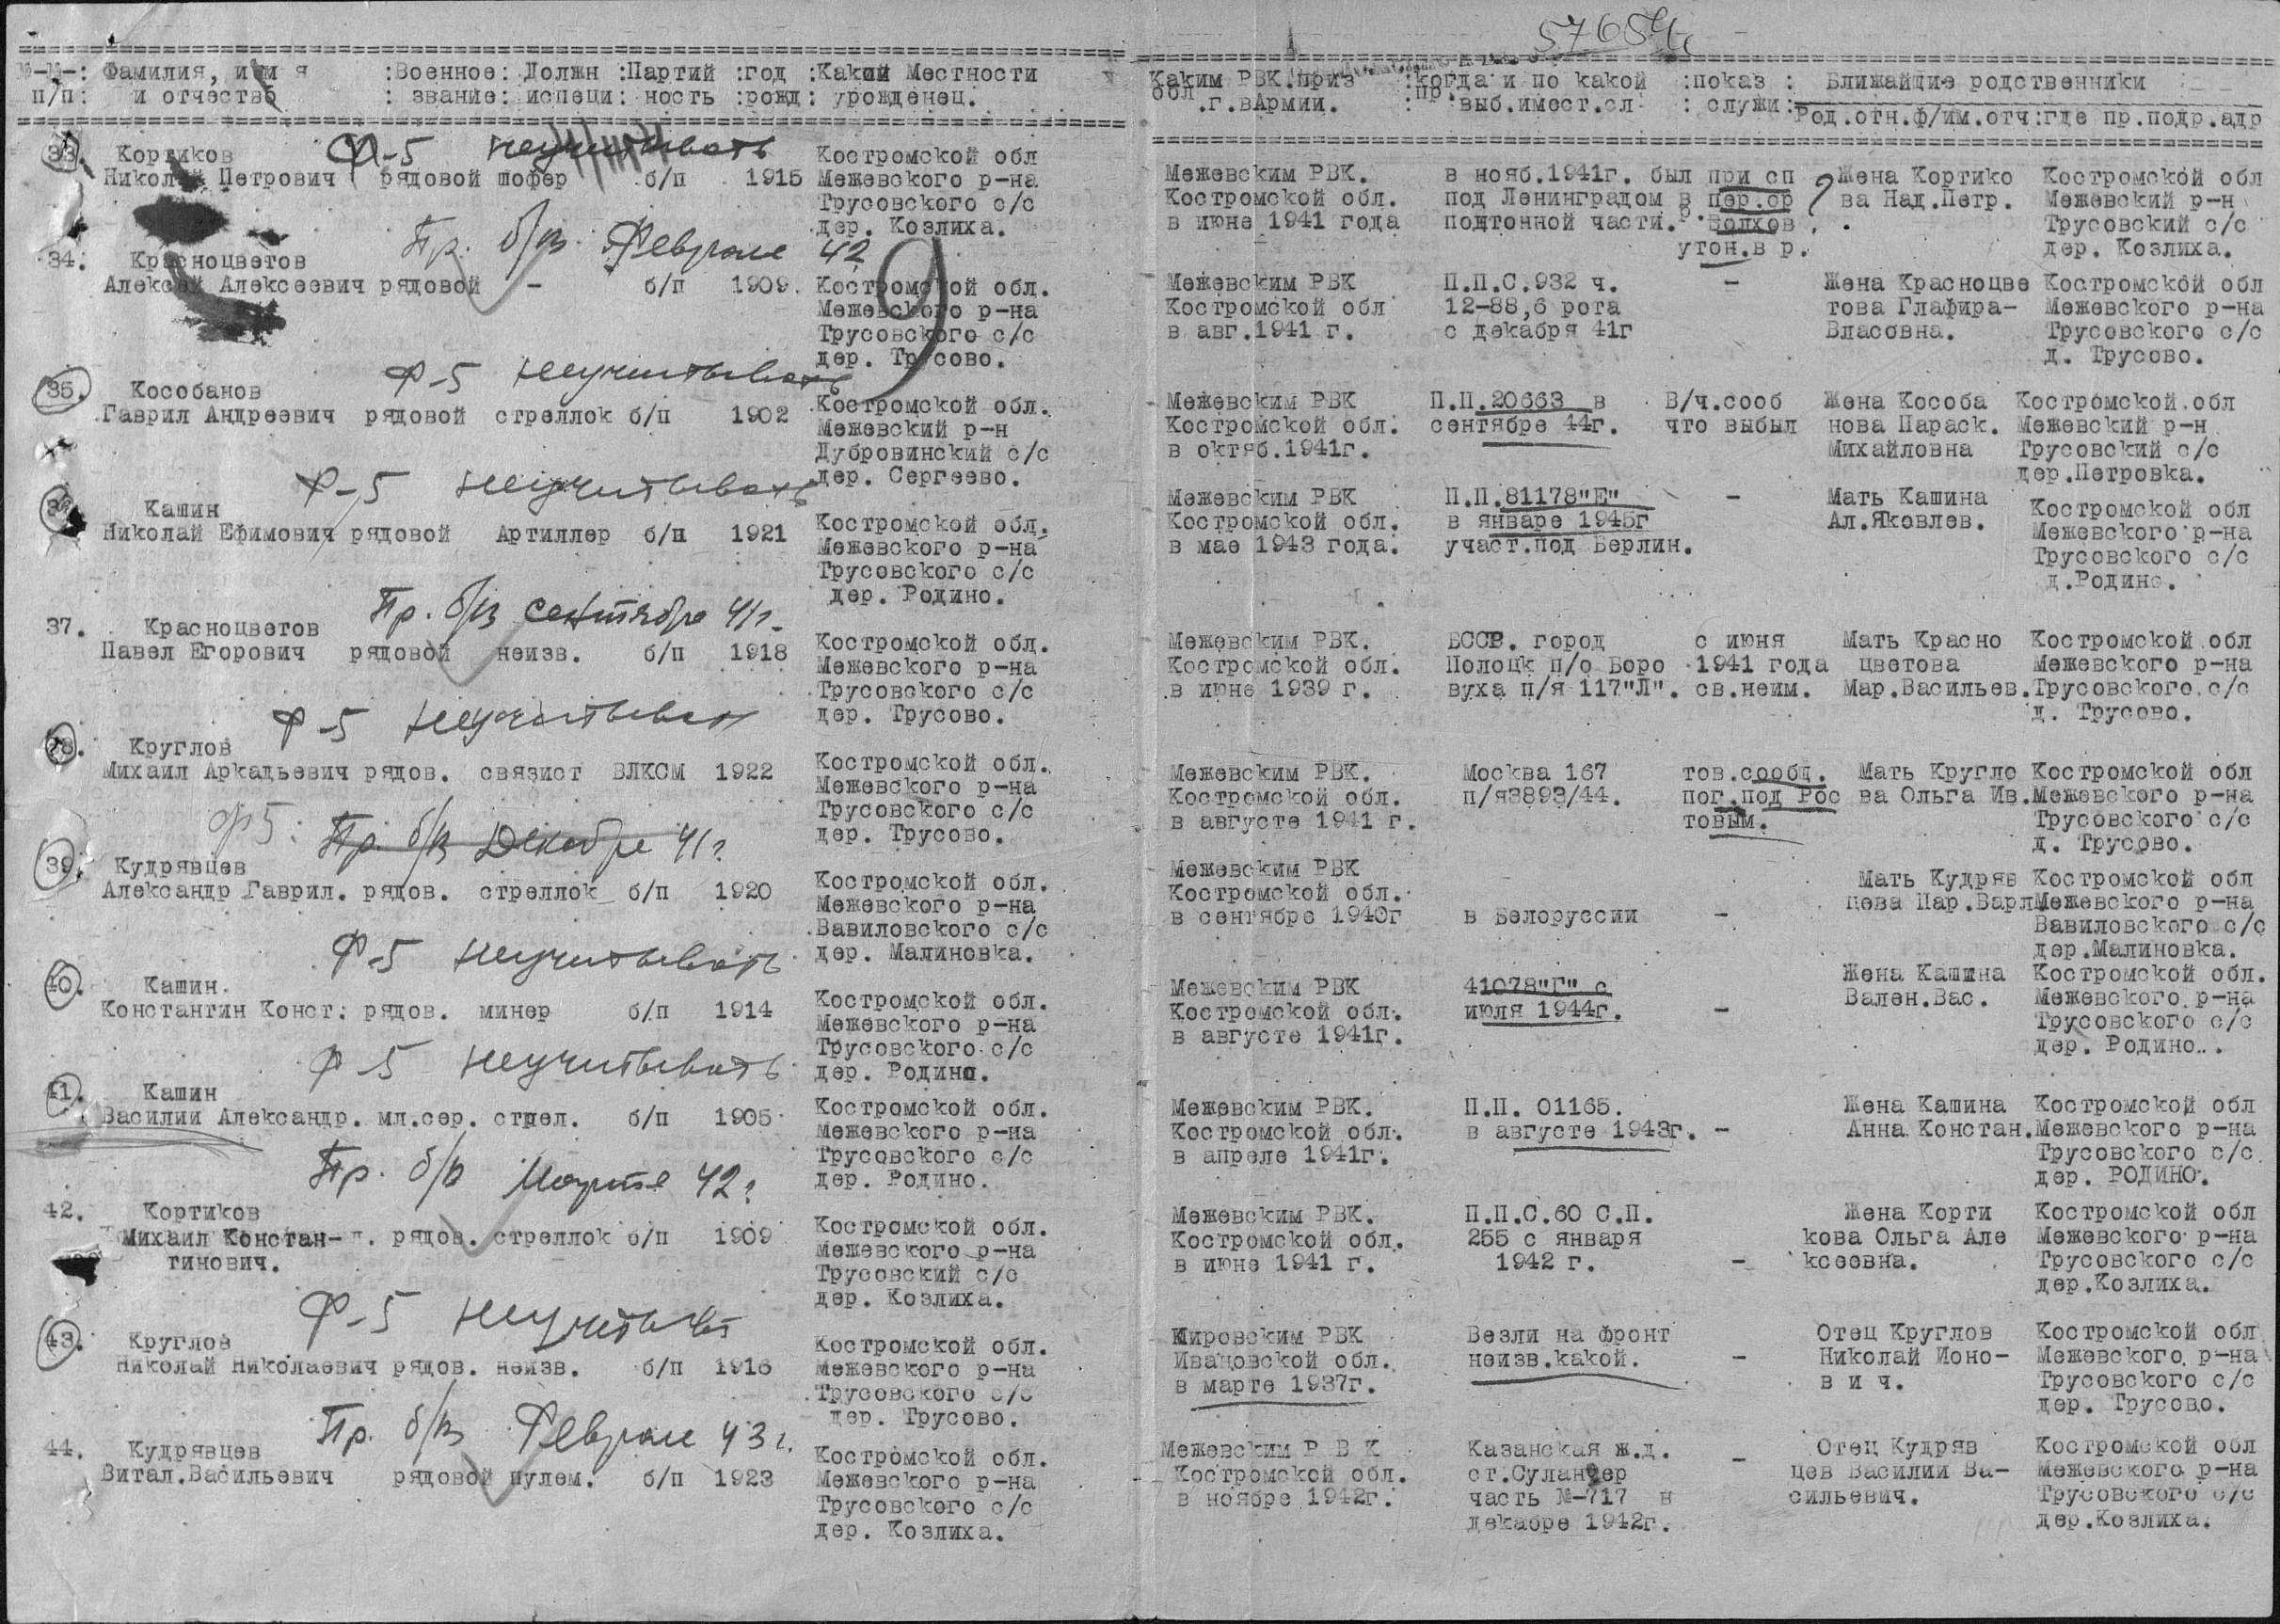 57654с
№-№-: Фамилия, и м я :Военное: Должн :Партий :год :Какой Местности
п/п: и отчество : звание: испеци: ность :рожд: урожденец.
Каким РВК.приз :когда и по какой :показ : Ближайщие родственники
обл .г.вАрмии. :пр.выб.имест.сл : служи:Род.отн.ф/им.отч:где пр.подр.адр
33. Кортиков Ф-5 неучитывать Костромской обл
Николай Петрович рядовой шофер б/п 1915 Межевского р-на
Трусовского с/с
дер. Козлиха.
Межевским РВК. в нояб.1941г. был при сп Жена Кортико Костромской обл
Костромской обл. под Ленинградом в пер.ср ва Над.Петр. Межевский р-н
в июне 1941 года понтонной части. р. Волхов. Трусовский с/с
утон.в р. дер. Козлиха.
Пр. б/в феврале 42
34. Красноцветов
Алексей Алексеевич рядовой - б/п 1909. Костромской обл.
Межевского р-на
Трусовского с/с
дер. Трусово.
Межевским РВК П.П.С.932 ч. - Жена Красноцве Костромской обл
Костромской обл 12-88,6 рота това Глафира- Межевского р-на
в авг.1941 г. с декабря 41г Власовна. Трусовского с/с
д. Трусово.
Ф-5 неучитывать
35. Кособанов Костромской обл.
Гаврил Андреевич рядовой стреллок б/п 1902 Межевский р-н
Дубровинский с/с
дер. Сергеево.
Межевским РВК П.П.20663 в В/ч.сооб Жена Кособа Костромской.обл
Костромской обл. сентябре 44г. что выбыл нова Параск. Межевский р-н
в октяб.1941г. Михайловна Трусовский с/с
дер.Петровка.
Ф-5 неучитывать
Кашин Костромской обл.
Николай Ефимович рядовой Артиллер б/п 1921 Межевского р-на
Трусовского с/с
дер. Родино.
Межевским РВК П.П.81178"Е" - Мать Кашина Костромской обл
Костромской обл. в январе 1945г Ал.Яковлев. Межевского р-на
в мае 1943 года. участ.под Берлин. Трусовского с/с
д.Родино.
Пр. б/в сентябре 41г.
37. Красноцветов Костромской обл.
Павел Егорович рядовой неизв. б/п 1918 Межевского р-на
Трусовского с/с
дер. Трусово.
Межевским РВК. БССР. город с июня Мать Красно Костромской обл
Костромской обл. Полоцк п/о Боро 1941 года цветова Межевского р-на
в июне 1939 г. вуха п/я 117"Л". св.неим. Мар.Васильев.Трусовского.с/с
д. Трусово.
Ф-5 неучитывать
38. Круглов Костромской обл.
Михаил Аркадьевич рядов. связист ВЛКСМ 1922 Межевского р-на
Трусовского с/с
дер. Трусово.
Межевским РВК. Москва 167 тов.сообщ. Мать Кругло Костромской обл
Костромской обл. п/я3893/44. пог.под Рос ва Ольга Ив.Межевского р-на
в августе 1941 г. товым. Трусовского с/с
д. Трусово.
ф5: Пр. б/в Декабре 41г
39. Кудрявцев Костромской обл.
Александр Гаврил. рядов. стреллок б/п 1920 Межевского р-на
Вавиловского с/с
дер. Малиновка.
Межевским РВК Мать Кудряв Костромской обл
Костромской обл. цева Пар.ВарлМежевского р-на
в сентябре 1940г в Белоруссии - Вавиловского с/с
дер.Малиновка.
Ф-5 неучитывать
40. Кашин. Костромской обл.
Константин Конст. рядов. минер б/п 1914 Межевского р-на
Трусовского с/с
дер. Родино.
Межевским РВК 41078"Г" с Жена Кашина Костромской обл.
Костромской обл. июля 1944г. - Вален.Вас. Межевского р-на
в августе 1941г. Трусовского с/с
дер. Родино..
Ф-5 неучитывать
41. Кашин Костромской обл.
Василии Александр. мл.сер. стрел. б/п 1905 Межевского р-на
Трусовского с/с
дер. Родино.
Межевским РВК. П.П. 01165. Жена Кашина Костромской обл
Костромской обл. в августе 1943г. - Анна Констан.Межевского р-на
в апреле 1941г. Трусовского с/с
дер. РОДИНО.
Пр. б/в Марте 42г
42. Кортиков Костромской обл.
Михаил Констан- рядов. стреллок б/п 1909 Межевского р-на
тинович. Трусовский с/с
дер. Козлиха.
Межевским РВК. П.П.С.60 С.П. Жена Корти Костромской обл
Костромской обл. 255 с января кова Ольга Але Межевского р-на
в июне 1941 г. 1942 г. - ксеевна. Трусовского с/с
дер.Козлиха.
Ф-5 неучитыват
43. Круглов Костромской обл.
Николай Николаевич рядов. неизв. б/п 1916 Межевского р-на
Трусовского с/с
дер. Трусово.
Кировским РВК Везли на фронт Отец Круглов Костромской обл
Ивановской обл. неизв.какой. - Николай Ионо- Межевского р-на
в марте 1937г. в и ч. Трусовского с/с
дер. Трусово.
Пр. б/в Феврале 43г.
44. Кудрявцев Костромской обл.
Витал.Васильевич рядовой пулем. б/п 1923 Межевского р-на
Трусовского с/с
дер. Козлиха.
Межевским Р В К Казанская ж.д. - Отец Кудряв Костромской обл
Костромской обл. ст.Суланgер цев Василии Ва- Межевского р-на
в ноябре 1942г. часть №-717 в сильевич. Трусовского с/с
декабре 1942г. дер.Козлиха.